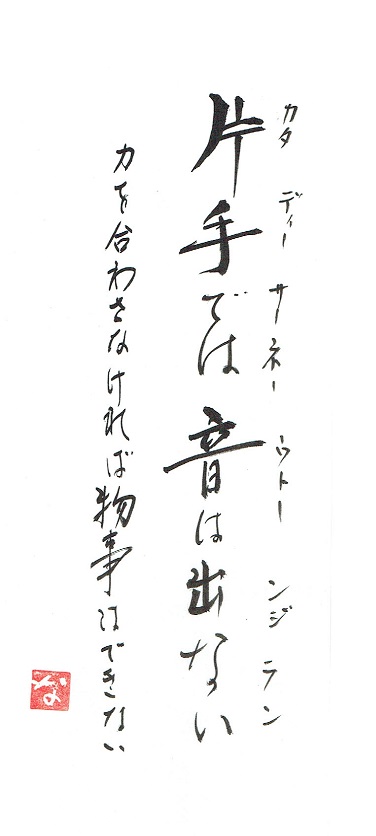 カタ ディー サーネー ウトー ンジ ラン
片手では音は出ない
力を合わさなければ物事はできない
な